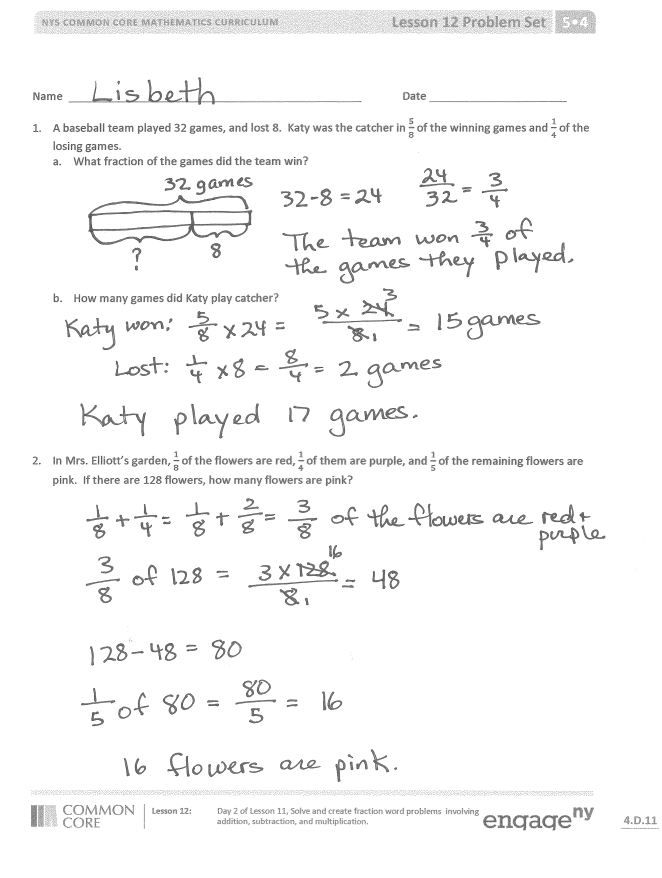 NYS COMMON CORE MATHEMATICS CURRICULUM Lesson 12 Problem Set 5•4
Name Lisbeth Date
1. A baseball team played 32 games, and lost 8. Katy was the catcher in 5/8 of the winning games and 1/4 of the
losing games.
a. What fraction of the games did the team win?
32 games
32-8=24 24/32 = 3/4
? 8
The team won 3/4 of
the games they played.
b. How many games did Katy play catcher?
Katy won: 5/8 x 24 = 5 x 24 3 / 8 1 = 15 games
Lost: 1/4 x 8 = 8/4 = 2 games
Katy played 17 games.
2. In Mrs. Elliott's garden, 1/8 of the flowers are red, 1/4 of them are purple, and 1/5 of the remaining flowers are
pink. If there are 128 flowers, how many flowers are pink?
1/8 + 1/4 = 1/8 + 2/8 = 3/8 of the flowers are red +
purple
3/8 of 128 = 3 x 128 16 / 8 1 = 48
128-48 = 80
1/5 of 80 = 80/5 = 16
16 flowers are pink.
COMMON CORE Lesson 12: Day 2 of Lesson 11, Solve and create fraction word problems involving
addition, subtraction, and multiplication.
engage ny
4.D.11